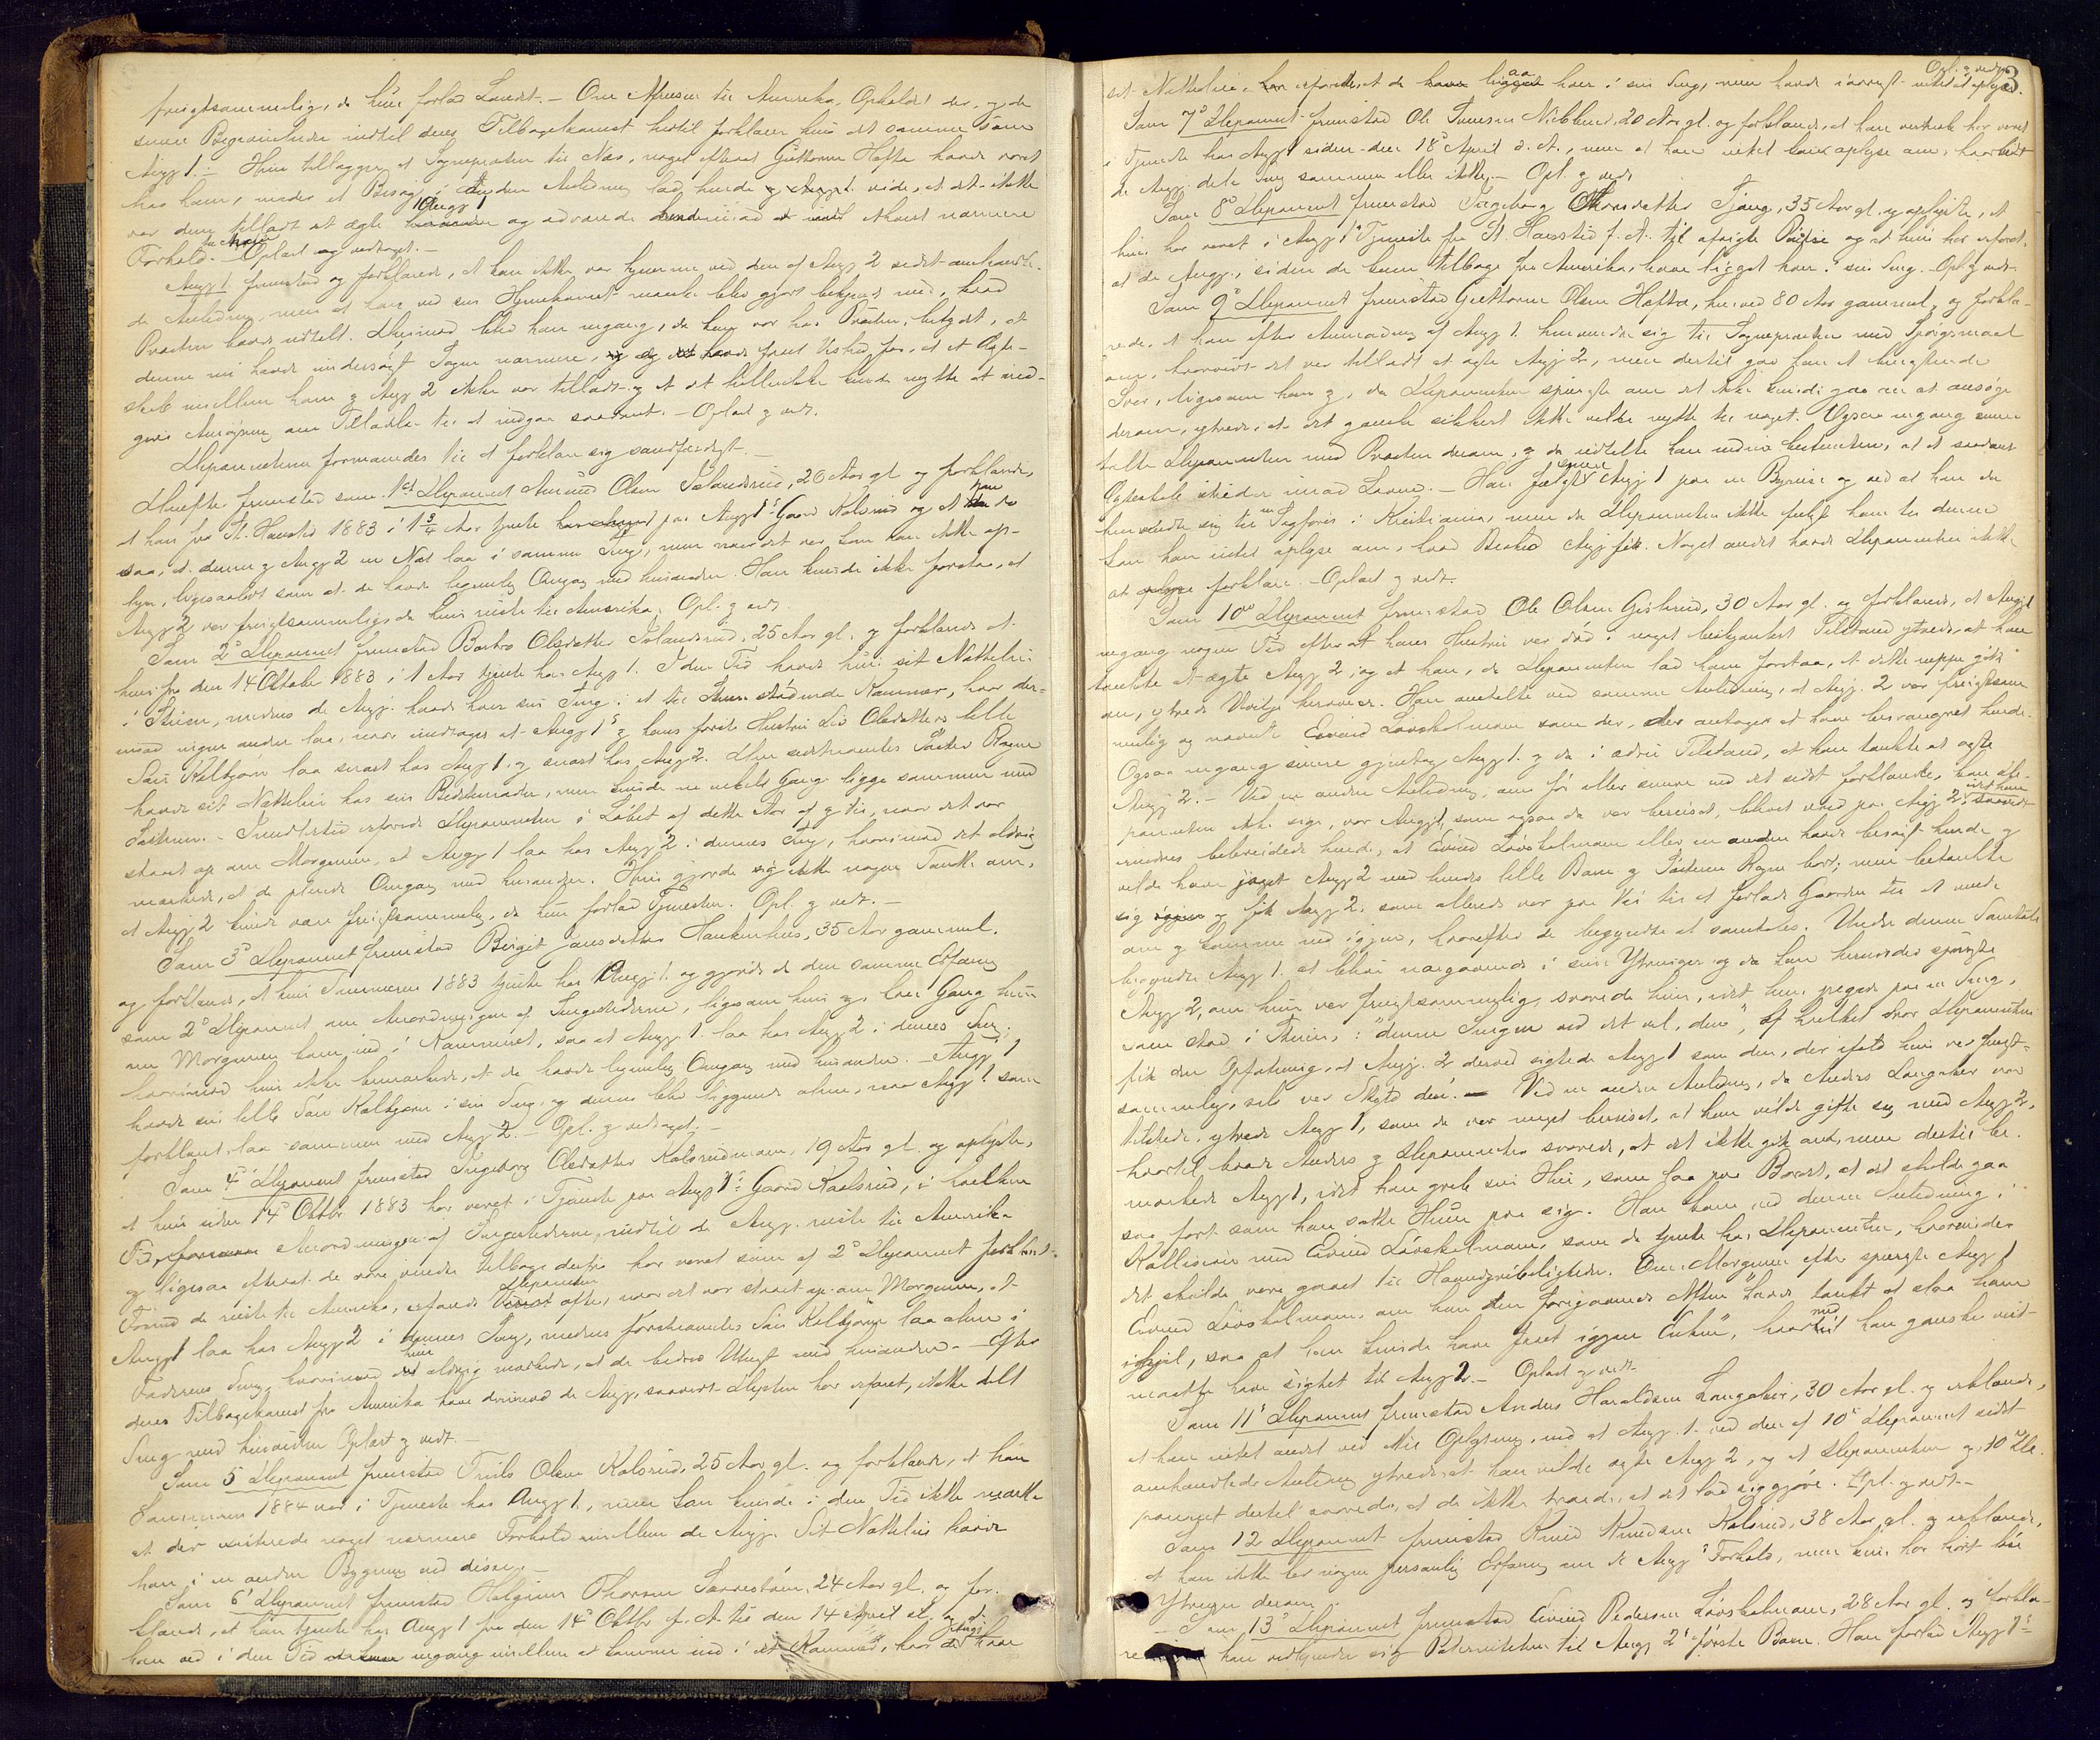 frugtsommelig, da hun forlod Landet. - Om Afreisen til Amerika, Opholdet der, og de
senere Begivenheder indtil deres Tilbagekomst hertil forklarer hun det samme som
Angj 1. - Hun tillægger, at Sognepresten til Næs, noget efterat Guttorm Hefta havde været
hos ham, under et Besøg i anden Anledning lod hende vide, at det ikke
var dem tilladt at ægte hinanden og advarede hende imod ethvert nærmere
Forhold. Oplæst og vedtaget. -
Angj 1 fremstod og forklarede, at han ikke var hjemme ved den af Angj 2 sidst omhandle-
de Anledning, men at han ved sin Hjemkomst maaske blev gjort bekjendt med, hvad
Presten havde udtalt. Derimod blev han engang, da han var hos Presten, betydet, at
denne nu havde undersøgt Sagen nærmere, og havde faaet Vished for, at et Ægte-
skab mellem ham og Angj 2 ikke var tilladt og at det hellerikke kunde nytte at ind-
give Ansøgning om Tilladelse til at indgaa saadant. - Oplæst og vedt.
Deponenterne formanedes til at forklare sig sandfærdigt. -
Derefter fremstod som 1st Deponent Amund Olsen Tolandsrud, 26 Aar gl. og forklarede,
at han fra St. Hanstid 1883 i 1 3/4 Aar tjente paa Angj 1s Gaard Kolsrud og at han da
saa, at denne og Angj 2 en Nat laa i samme Seng, men naar det var kan han ikke op-
lyse, ligesaalidt som at de havde legemlig Omgang med hinanden. Han kunde ikke forstaa, at
Angj 2 var frugtsommelig da hun reiste til Amerika. Opl. og vedt.
Som 2d Deponent fremstod Barbro Olsdatter Tolandsrud, 25 Aar gl. og forklarede at
hun fra den 14 Oktober 1883 i 1 Aar tjente hos Angj 1. I den Tid havde hun sit Natteleie
i Stuen, medens de Angj. havde hver sin Seng i et til Stuen stødende Kammer, hvor der-
imod ingen anden laa, naar undtages at Angj 1s og hans første Hustru Liv Olsdatters lille
Søn Kolbjørn laa snart hos Angj 1, og snart hos Angj 2. Den sidstnævntes Søster Ragne
havde sit Natteleie hos sin Bedstemoder, men kunde en enkelt Gang ligge sammen med
Søsteren. - Imidlertid erfarede Deponenten i Løbet af dette Aar af og til, naar det var
staaet op om Morgenen, at Angj 1 laa hos Angj 2 i dennes Seng, hvorimod det aldrig
mærkedes, at de pleiede Omgang med hinanden. Hun gjorde sig ikke nogen Tanke om,
at Angj 2 kunde være frugtsommelig, da hun forlod Tjenesten. Opl. og vedt. -
Som 3d Deponent fremstod Birgit Jønsdatter Haukenhus, 35 Aar gammel,
og forklarede, at hun Sommeren 1883 tjente hos Angj 1. og gjorde da den samme Erfaring
som 2d Deponent om Anordningen af Sengestederne, ligesom hun og, hver Gang hun
om Morgenen kom ind i Kammeret, saa at Angj 1 laa hos Angj 2 i dennes Seng,
hvorimod hun ikke bemærkede, at de havde legemlig Omgang med hinanden. Angj 1
havde sin lille Søn Kolbjørn i sin Seng og denne blev liggende alene, naar Angj 1 som
forklaret, laa sammen med Angj 2. - Opl. og vedtaget. -
Som 4d Deponent fremstod Ingeborg Olsdatter Kolsrudmoen, 19 Aar gl. og oplyste,
at hun siden 14d Oktbr. 1883 har været i Tjeneste paa Angj 1s Gaard Kaalsrud, i hvilken
Tid Anordningen af Sengestederne, indtil de Angj. reiste til Amerika
og ligesaa efterat de vare vendte tilbage derfra har været som af 2d Deponent forklaret.
Forind de reiste til Amerika, erfarede Deponenten ofte, naar det var staaet op om Morgenen, at
Angj 1 laa hos Angj 2 i dennes Seng, medens førstnævntes Søn Kolbjørn laa alene i
Faderens Seng, hvorimod hun aldrig mærkede, at de bedrev Utugt med hinanden. - Efter
deres Tilbagekomst fra Amerika have derimod de Angj., saavidt Depten har erfaret, ikke delt
Seng med hinanden Oplæst og vedt. -
Som 5 Deponent fremstod Truls Olsen Kolsrud, 25 Aar gl. og forklarede, at han
Sommeren 1884 var i Tjeneste hos Angj 1, men han kunde i den Tid ikke mærke
at der existerede noget nærmere Forhold mellem de Angj. Sit Natteleie havde
han i en anden Bygning end disse. -
Som 6' Deponent fremstod Halgrim Thorsen Sørrestøen, 24 Aar gl. og for-
klarede, at han tjente hos Angj 1 fra den 14d Oktbr f. A. til den 14 April d. A. og at
han ved i den Tid engang imellem at komme ind i det Kammer, hvor de Angj. have
sit Natteleie, erfarede, at de laa hver i sin Seng, men havde iøvrigt intet at oplyse. Opl. og vedt.
Som 7d Deponent fremstod Ole Svensen Nibblerud, 20 Aar gl. og forklarede, at han vistnok har været
i Tjeneste hos Angj 1 siden den 18d April d. A., men at han intet kan oplyse om, hvorvidt
de Angj. dele Seng sammen eller ikke. - Opl. og vedt.
Som 8d Deponent fremstod Ingeborg Thorsdatter Tjong, 35 Aar gl. og oplyste, at
hun har været i Angj 1s Tjeneste fra St. Hanstid f. A. til afvigte Paaske og at hun har erfaret,
at de Angj., siden de kom tilbage fra Amerika, have ligget hver i sin Seng. Opl. og vedt.
Som 9d Deponent fremstod Guttorm Olsen Hefta, henved 80 Aar gammel, og forkla-
rede, at han efter Anmodning af Angj 1. henvendte sig til Sognepresten med Spørgsmaal
om, hvorvidt det var tilladt at ægte Angj 2, men dertil gav han et benegtende
Svar, ligesom han og, da Deponenten spurgte om det ikke kunde gaa an at ansøge
derom, ytrede, at det ganske sikkert ikke vilde nytte til noget. Ogsaa engang senere
talte Deponenten med Presten derom, og da udtalte han endnu bestemtere, at et saadant
Ægteskab strider imod Loven. - Han fulgte senere Angj 1 paa en Byreise og ved at han da
henvendte sig til en Sagfører i Kristiania, men da Deponenten ikke fulgte ham til denne
kan han intet oplyse om, hvad Besked Angj fik. Noget andet havde Deponenten ikke
at forklare. - Oplæst og vedt. -
Som 10d Deponent fremstod Ole Olsen Gislerud, 30 Aar gl. og forklarede, at Angj 1
engang nogen Tid efterat hans Hustru var død i noget beskjænket Tilstand ytrede, at han
tænkte at ægte Angj 2; og at han, da Deponenten lod ham forstaa, at dette neppe gik
an, ytrede Uvilje herover. Han omtalte ved samme Anledning, at Angj. 2 var frugtsom-
melig og nævnte Eivind Løvskolmoen som den, der antages at have besvangret hende.
Ogsaa engang senere gjentog Angj 1. og da i ædru Tilstand, at han tænkte at ægte
Angj 2. - Ved en anden Anledning, om før eller senere end det sidst forklarede, kan De-
ponenten ikke sige, var Angj 1, som ogsaa da var beruset, blevet vred paa Angj 2, idet han
bebreidede hende, at Eivind Løvskolmoen eller en anden havde besøgt hende og
vilde have jaget Angj 2 med hendes lille Barn og Søsteren Ragne bort; men betænkte
sig og fik Angj 2, som allerede var paa Vei til at forlade Gaarden til at vende
om og komme ind igjen, hvorefter de begyndte at samtales. Under denne Samtale
begyndte Angj 1. at blive nærgaaende i sine Ytringer og da han herunder spurgte
Angj 2, om hun var frugtsommelig, svarede hun, idet hun pegede paa en Seng,
som stod i Stuen,: "denne Sengen ved det vel, den", af hvilket Svar Deponenten
fik den Opfatning, at Angj. 2 derved sigtede Angj 1 som den, der ifald hun var frugt-
sommelig, selv var Skyld deri. - Ved en anden Anledning, da Anders Langaker var
tilstede, ytrede Angj 1, som da var noget beruset, at han vilde gifte sig med Angj 2,
hvortil baade Anders og Deponenten svarede, at det ikke gik an, men dertil be-
mærkede Angj 1, idet han greb sin Hue, som laa paa Bordet, at det skulde gaa
saa fort som han satte Huen paa sig. Han kom ved denne Anledning i
Kollision med Eivind Løvskolmoen, som da tjente hos Deponenten, hvorunder
det skulde være gaaet til Haandgribeligheder. Om Morgenen efter spurgte Angj 1
Eivind Løvskolmoen, om han den foregaaende Aften havde tænkt at slaa ham
ihjel, saa at han kunde have faaet igjen Enken", hvormed han ganske vist
maatte have sigtet til Angj 2. - Oplæst og vedt.
Som 11' Deponent fremstod Anders Haraldsen Langaker, 30 Aar gl. og erklærede,
at han intet andet ved til Oplysning, end at Angj. 1. ved den af 10d Deponent sidst
omhandlede Anledning ytrede, at han vilde ægte Angj 2, og at Deponenten og 10d De-
ponent dertil svarede, at de ikke troede, at det lod sig gjøre. Opl. og vedt. -
Som 12 Deponent fremstod Knud Knudsen Kolsrud, 38 Aar gl. og erklærede,
at han ikke har nogen personlig Erfaring om de Angj.s Forhold, men kun har hørt løse
Ytringer derom. -
Som 13d Deponent fremstod Eivind Pedersen Løvskolmoen, 28 Aar gl. og forkla-
rede, han vedkjender sig Paterniteten til Angj 2s første Barn. Han forlod Angj 1s